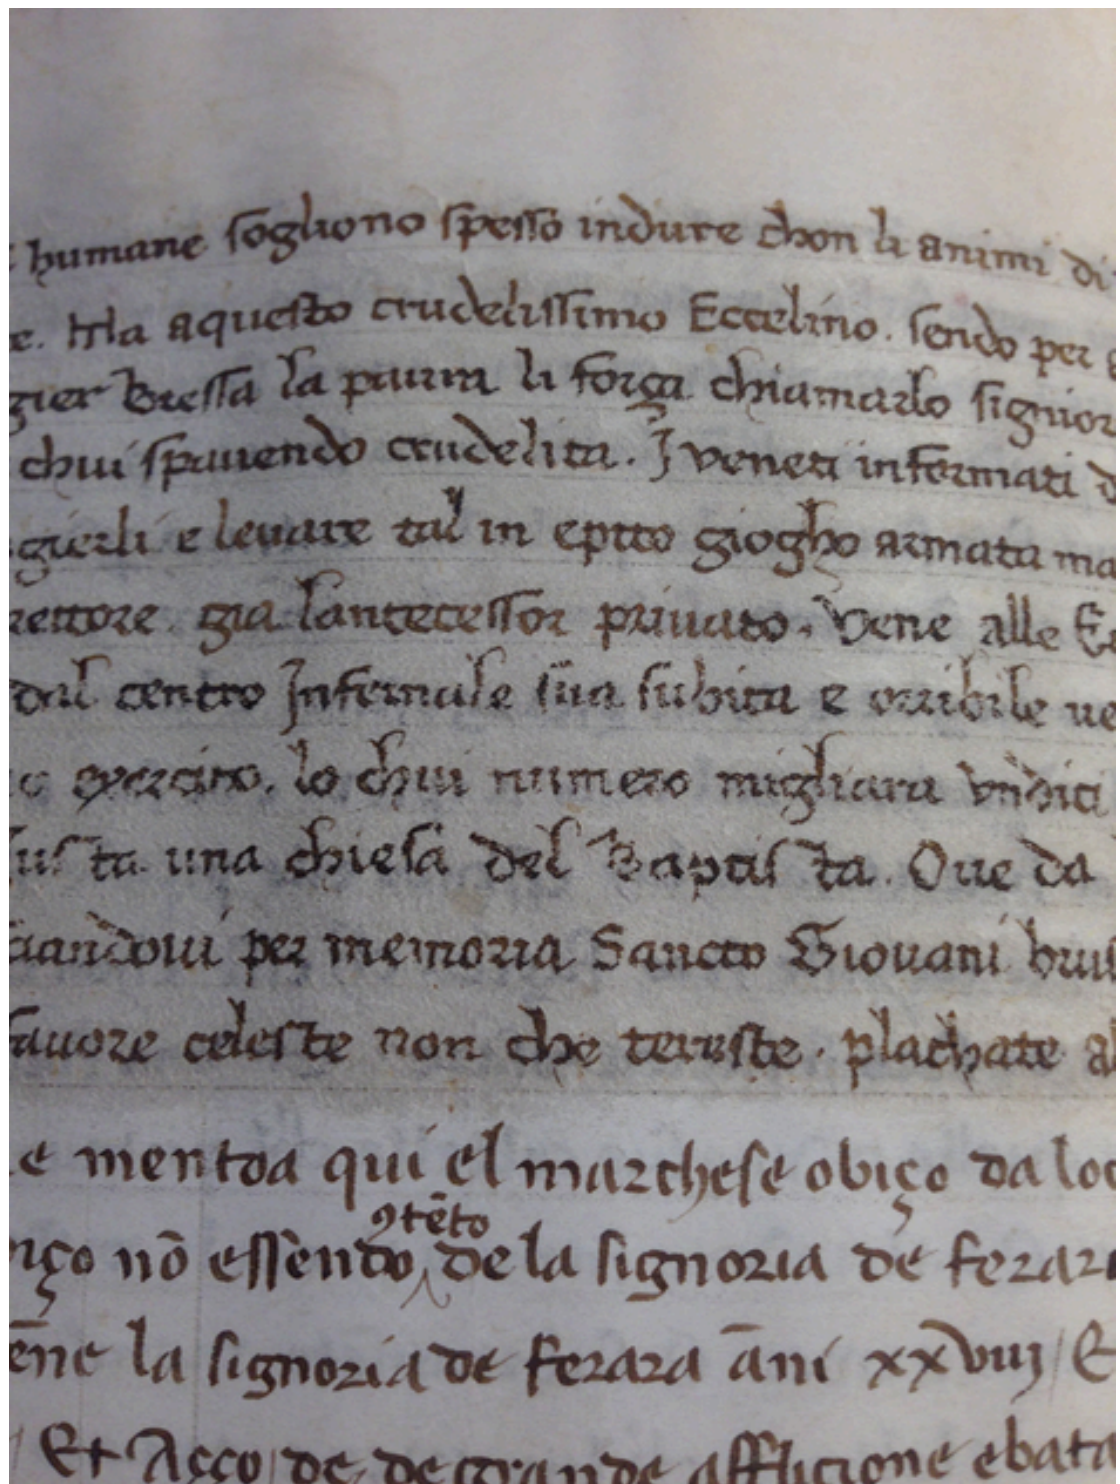 humane sogliono spesso indure chon li animi di
e. Ma aquesto crudelissimo Eccelino. sendo per
gier Bressa la paura li força chiamarlo signior
chui spauendo crudelita. J veneti informati d
gierli e leuare tal in eptto giogho armata ma
rettore gia lantecessor priuato. Vene alle
dal centro Infernale sua subita e orribile ue
exercito. lo chui numero migliara vndici
us ta una chiesa del Baptis ta. Oue da
andoui per memoria Sancto Giouani
fauore celeste non che tereste. plachate al
e mentoa qui el marchese obiço da
ꝯtēto
iço nō essendo de la signoria de ferar
ēne la signoria de ferara āni xxviij / E
Et Açço de de grande afflicione ebata